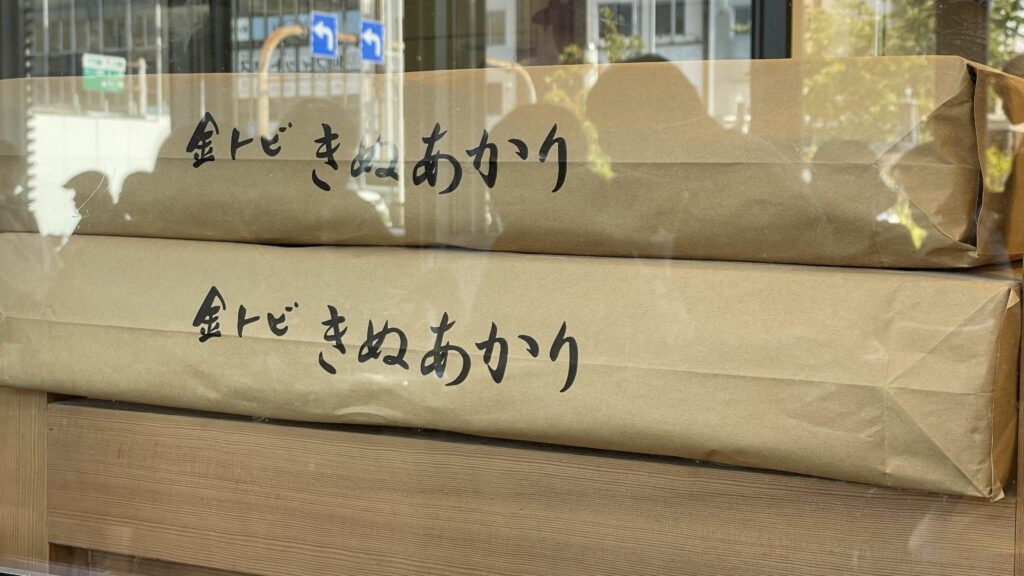 金トビ きぬあかり
金トビ きぬあかり